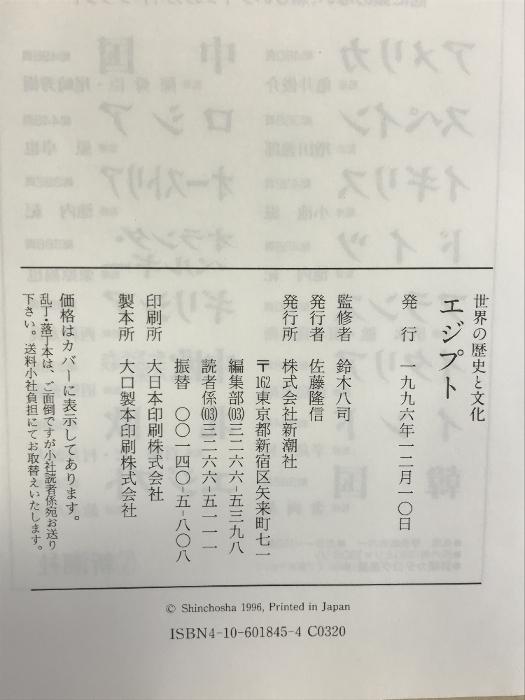 世界の歴史と文化
エジプト
発行 一九九六年一二月一〇日
監修者 鈴木八司
発行者 佐藤隆信
発行所 株式会社新潮社
〒162東京都新宿区矢来町七一
編集部(03)三二六六-五三九八
読者係(03)三二六六-五一一一
振替 〇〇一四〇-五-八〇八
印刷所 大日本印刷株式会社
製本所 大口製本印刷株式会社
価格はカバーに表示してあります。
乱丁・落丁本は、ご面倒ですが小社読者係宛お送り
下さい。送料小社負担にてお取替えいたします。
© Shinchosha 1996, Printed in Japan
ISBN4-10-601845-4 C0320